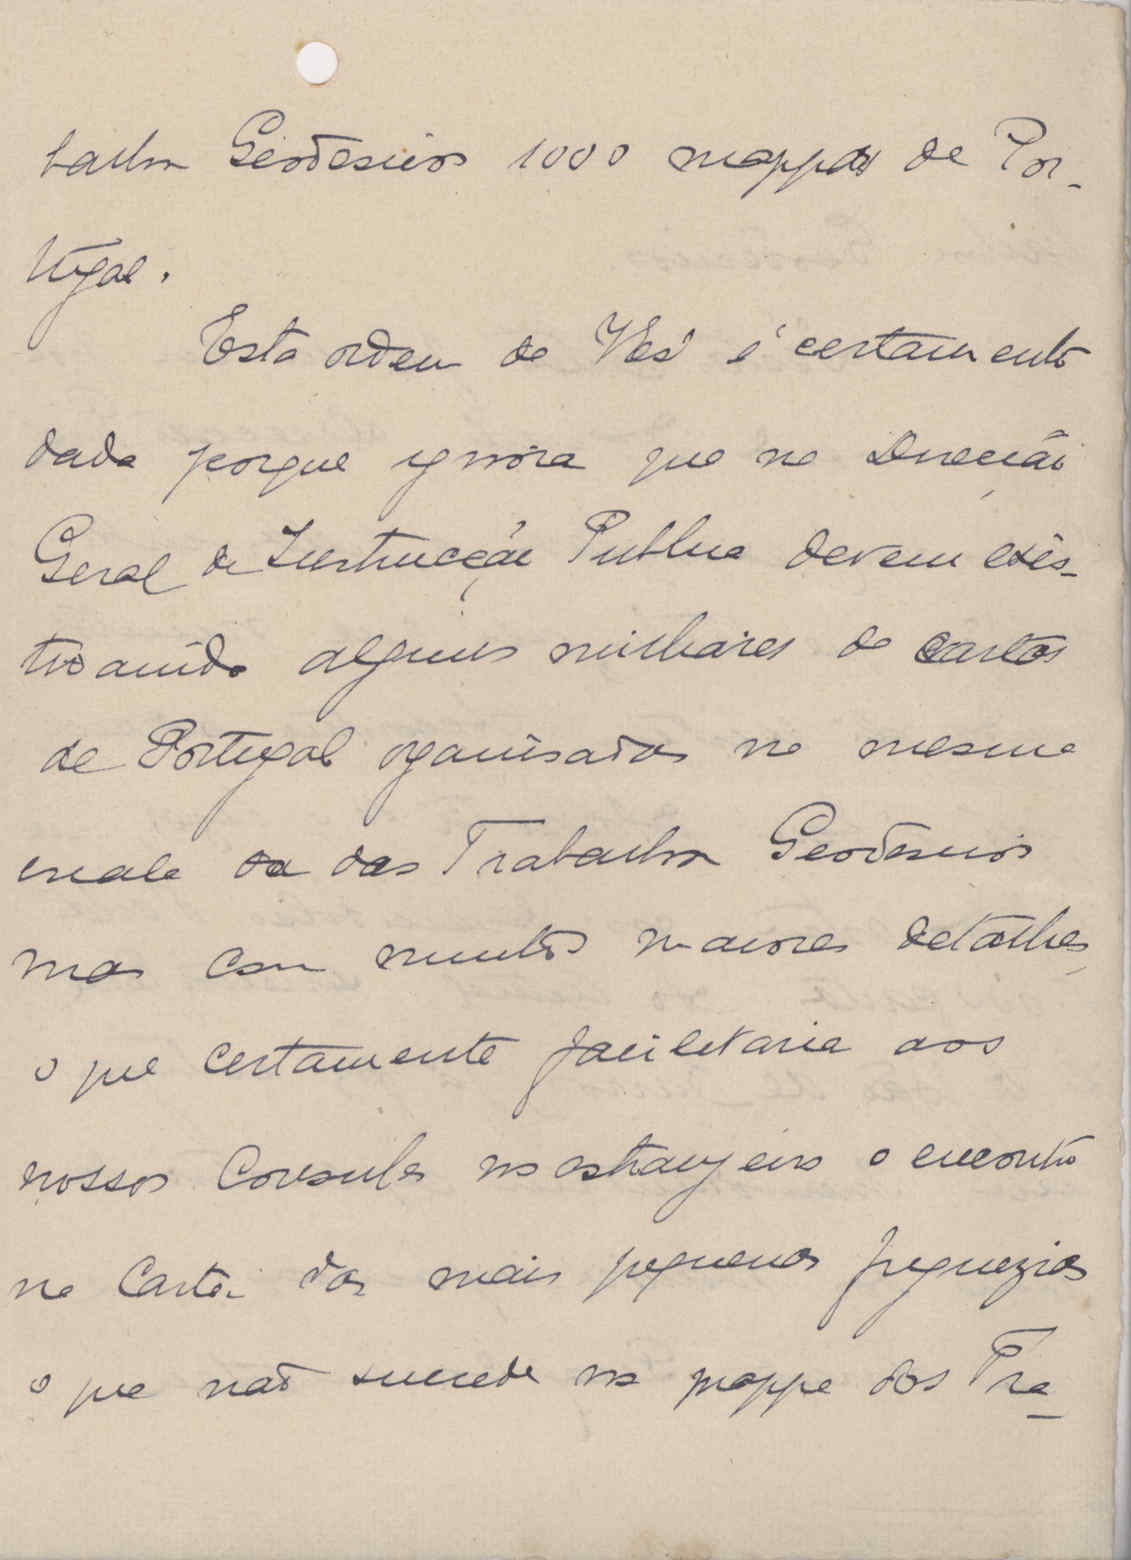 balhos Geodesicos 1000 mappas de Por-
tugal.
Esta ordem de V.Exª é certamente
dada porque ignora que na Direcção
Geral de Instrucção Publica devem exis-
tir ainda alguns milhares de cartas
de Portugal organisadas na mesma
escala da dos Trabalhos Geodesicos
mas com muitos maiores detalhes,
o que certamente facilitaria aos
nossos Consules no estrangeiro o encontro
na Carta das mais pequenas freguezias
o que não succede no mappa dos Tra-